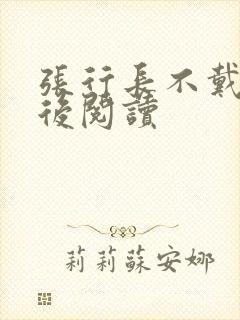 張行長不戴
後閱讀
莉莉蘇安娜